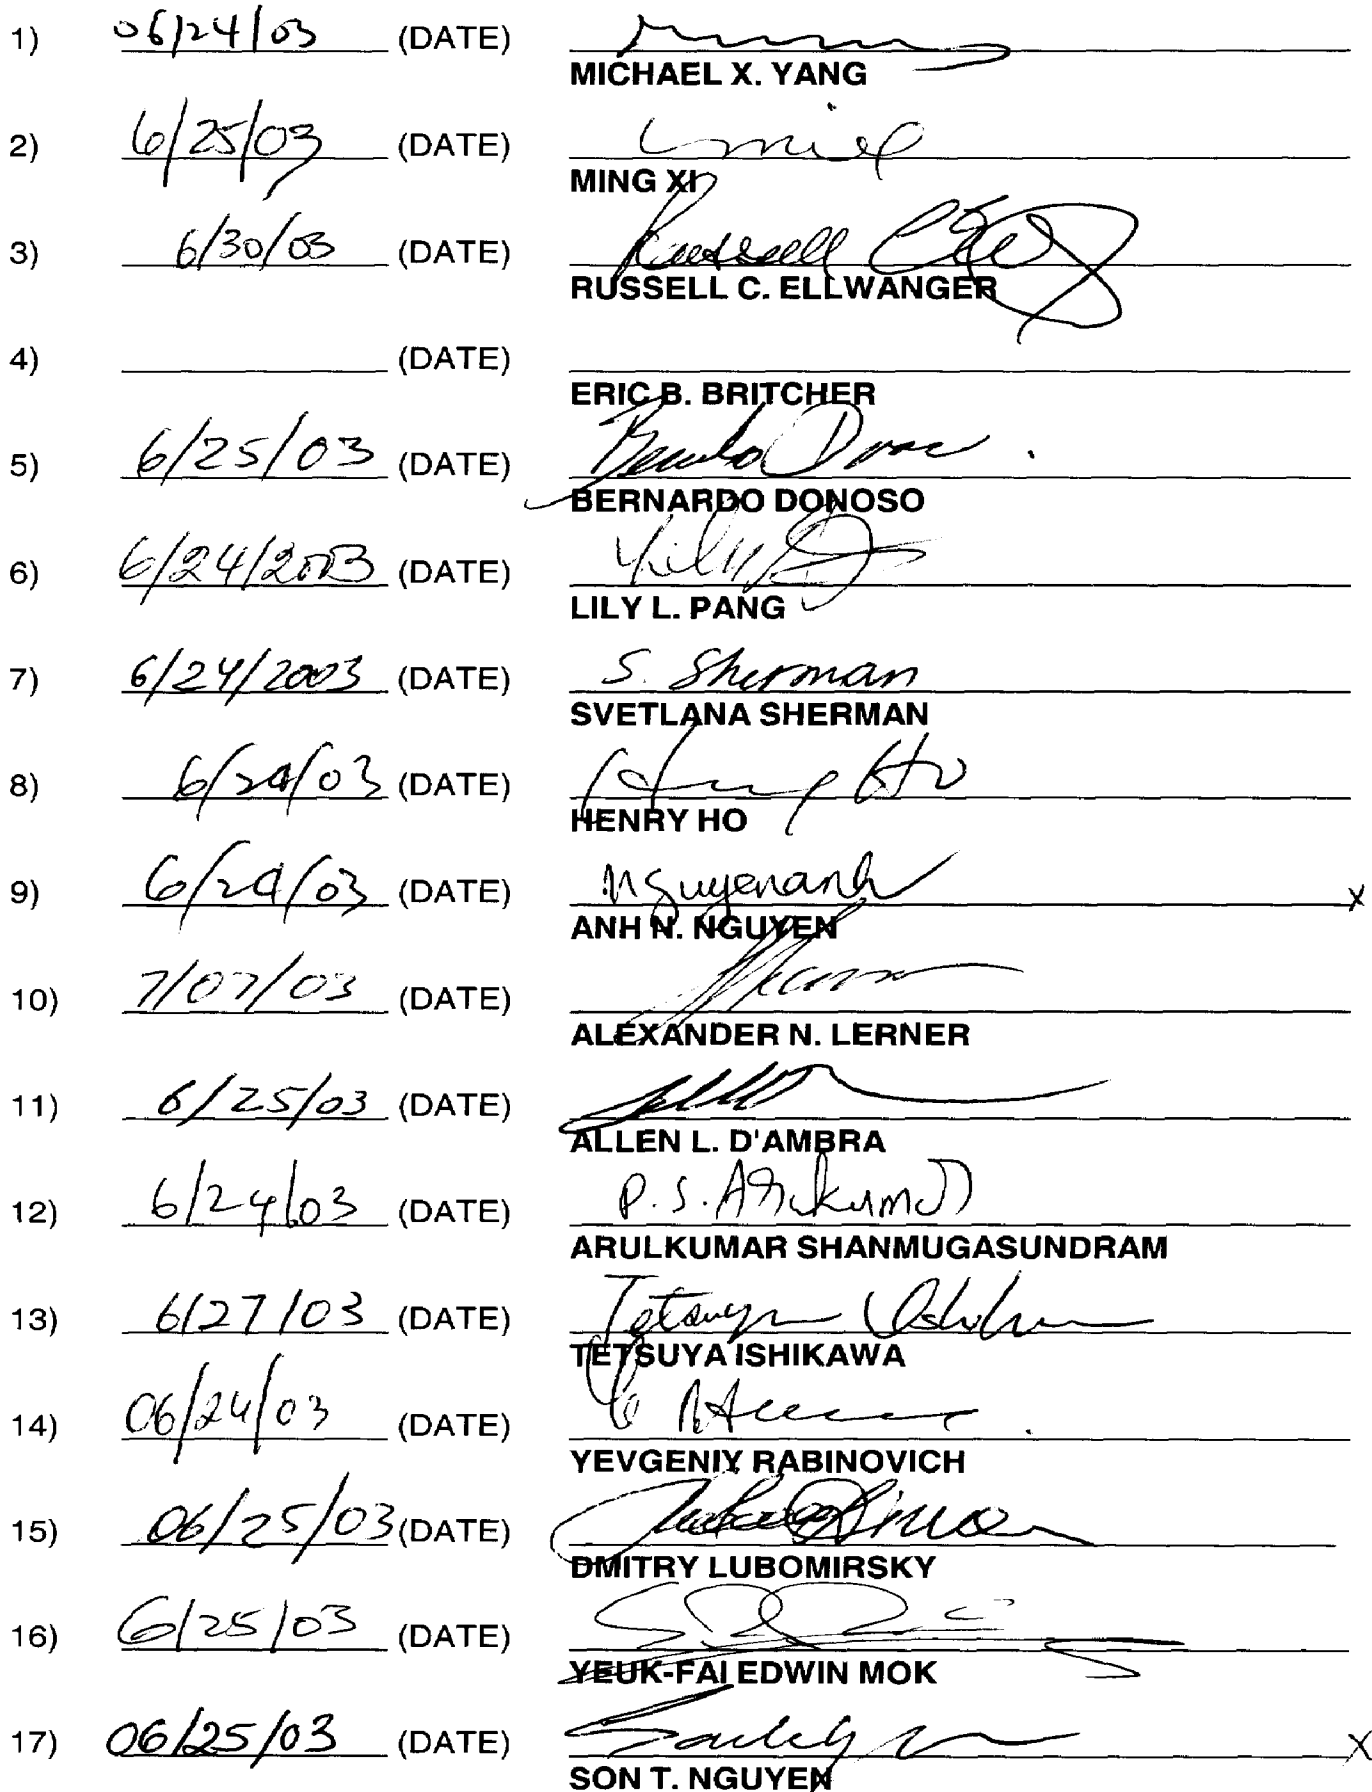 1) 06/24/03 (DATE)
MICHAEL X. YANG
2) 6/25/03 (DATE)
MING XI
3) 6/30/03 (DATE) Russell
RUSSELL C. ELLWANGER
4) (DATE)
ERIC B. BRITCHER
5) 6/25/03 (DATE)
BERNARDO DONOSO
6) 6/24/2003 (DATE) Lily
LILY L. PANG
7) 6/24/2003 (DATE) S. Sherman
SVETLANA SHERMAN
8) 6/24/03 (DATE) Ho
HENRY HO
9) 6/24/03 (DATE) Nguyenanh x
ANH N. NGUYEN
10) 7/07/03 (DATE)
ALEXANDER N. LERNER
11) 6/25/03 (DATE)
ALLEN L. D'AMBRA
12) 6/24/03 (DATE) P.S.
ARULKUMAR SHANMUGASUNDRAM
13) 6/27/03 (DATE) Tetsuya
TETSUYA ISHIKAWA
14) 06/24/03 (DATE)
YEVGENIY RABINOVICH
15) 06/25/03 (DATE)
DMITRY LUBOMIRSKY
16) 6/25/03 (DATE)
YEUK-FAI EDWIN MOK
17) 06/25/03 (DATE) X
SON T. NGUYEN